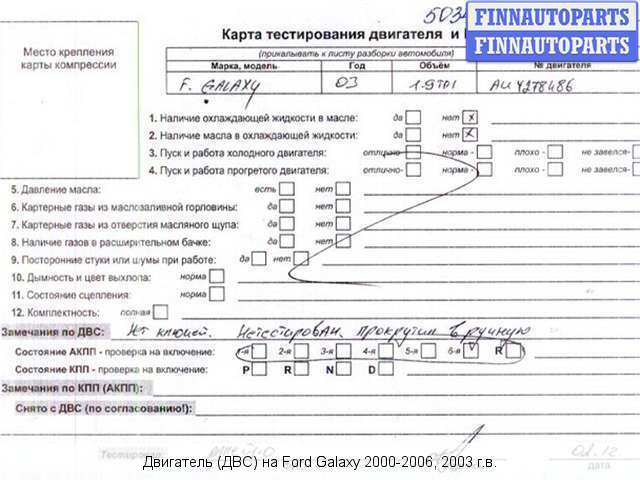 503
FINNAUTOPARTS
FINNAUTOPARTS
Карта тестирования двигателя и
(прикалывать к листу разборки автомобиля)
Место крепления
карты компрессии
Марка, модель Год Объём № двигателя
F. GALAXY 03 1.9TDI AUY278486
1. Наличие охлаждающей жидкости в масле: да нет x
2. Наличие масла в охлаждающей жидкости: да нет x
3. Пуск и работа холодного двигателя: отлично- норма - плохо - не завелся-
4. Пуск и работа прогретого двигателя: отлично- норма - плохо - не завелся-
5. Давление масла: есть нет
6. Картерные газы из маслозаливной горловины: да нет
7. Картерные газы из отверстия масляного щупа: да нет
8. Наличие газов в расширительном бачке: да нет
9. Посторонние стуки или шумы при работе: да нет
10. Дымность и цвет выхлопа: норма
11. Состояние сцепления: норма
12. Комплектность: полная
Замечания по ДВС: Нт ключей. Нетестирован. прокрутил вручную
Состояние АКПП - проверка на включение: 1-я 2-я 3-я 4-я 5-я 6-я R
Состояние КПП - проверка на включение: P R N D
Замечания по КПП (АКПП):
Снято с ДВС (по согласованию!):
Тестировал:
02.12
дата
Двигатель (ДВС) на Ford Galaxy 2000-2006, 2003 г.в.